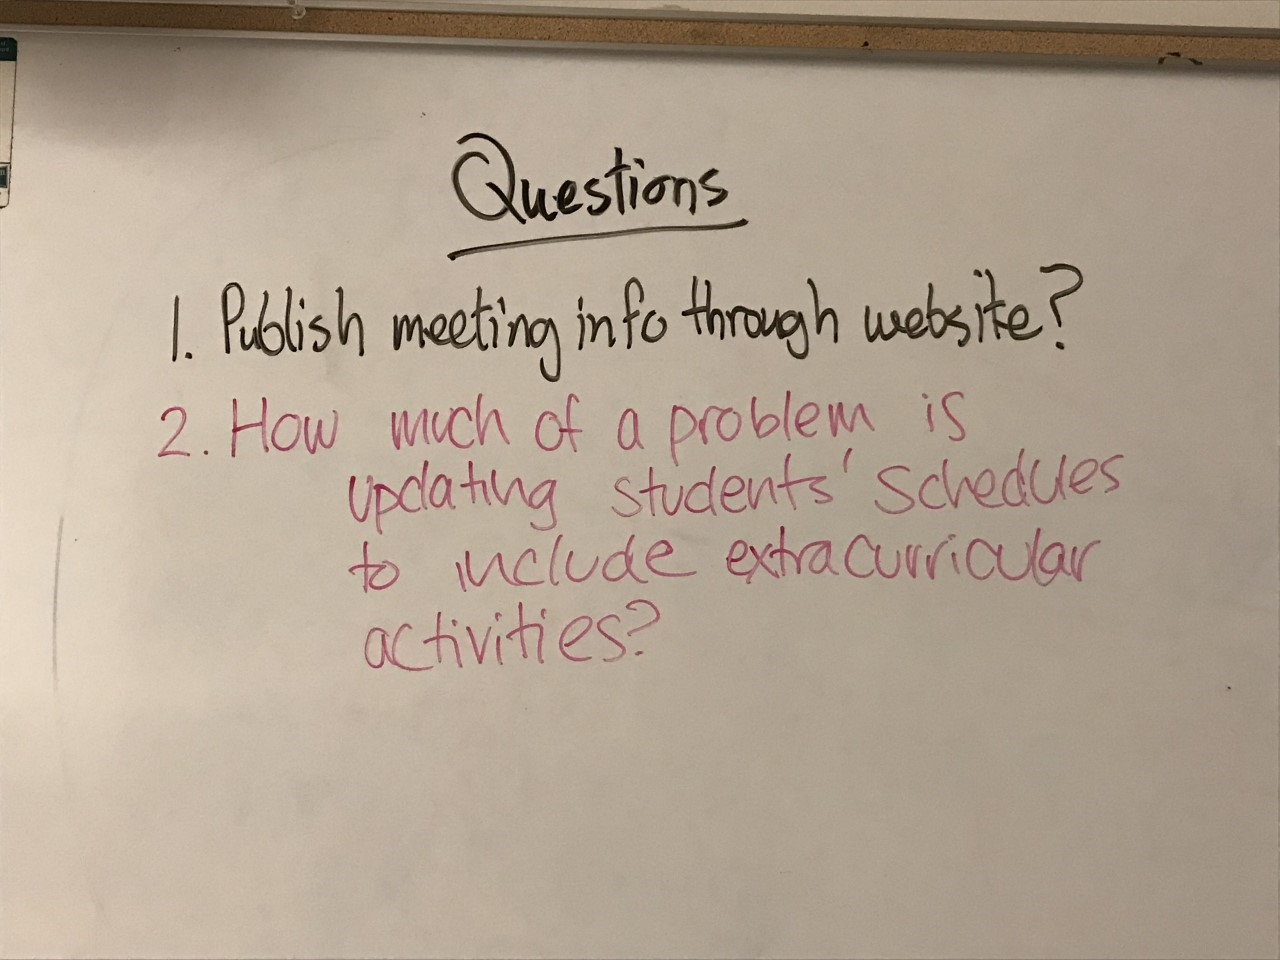 Questions
1. Publish meeting info through website?
2. How much of a problem is
updating students' schedules
to include extracurricular
activities?